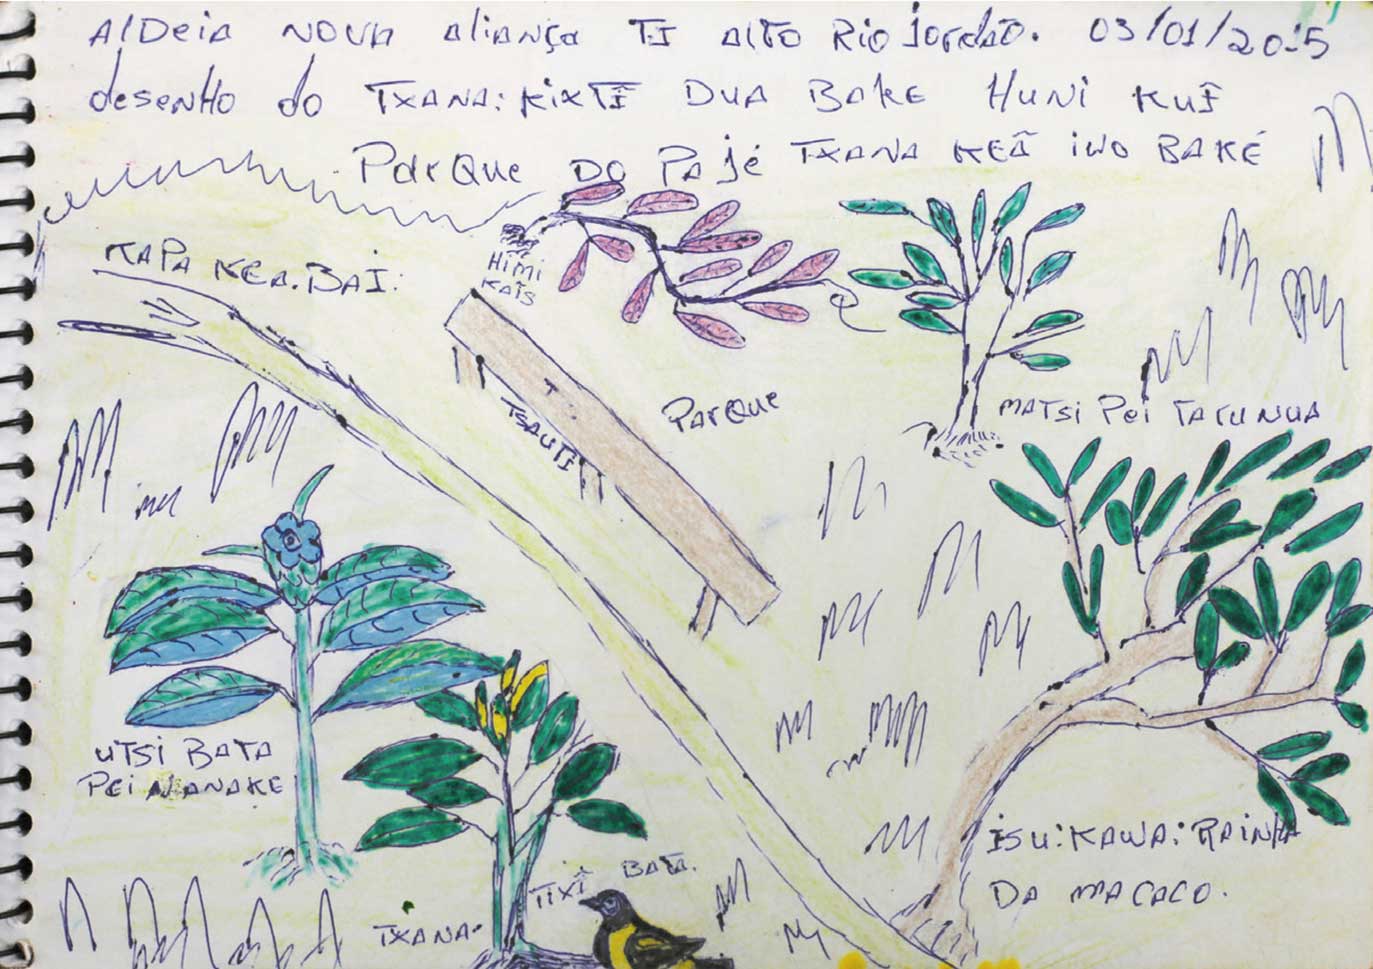 AlDeia NOVA aliança TI AlTO Rio jordão. 03/01/2015
desenHo do TXANA: KIXTĨ DUA BAKE HUNI KUĨ
ParQue DO PAJÉ TXANA KEÃ iWO BAKÉ
KAPA KEA.BAĨ:
HIMI
KAĨS
TSAUTĨ
ParQue
MATSI Pei TARUNUA
UTSI BATA
Pei NANAKE
ISU:KAWA:RAINHA
DA MACACO.
TIXĨ BATA.
TXANA.